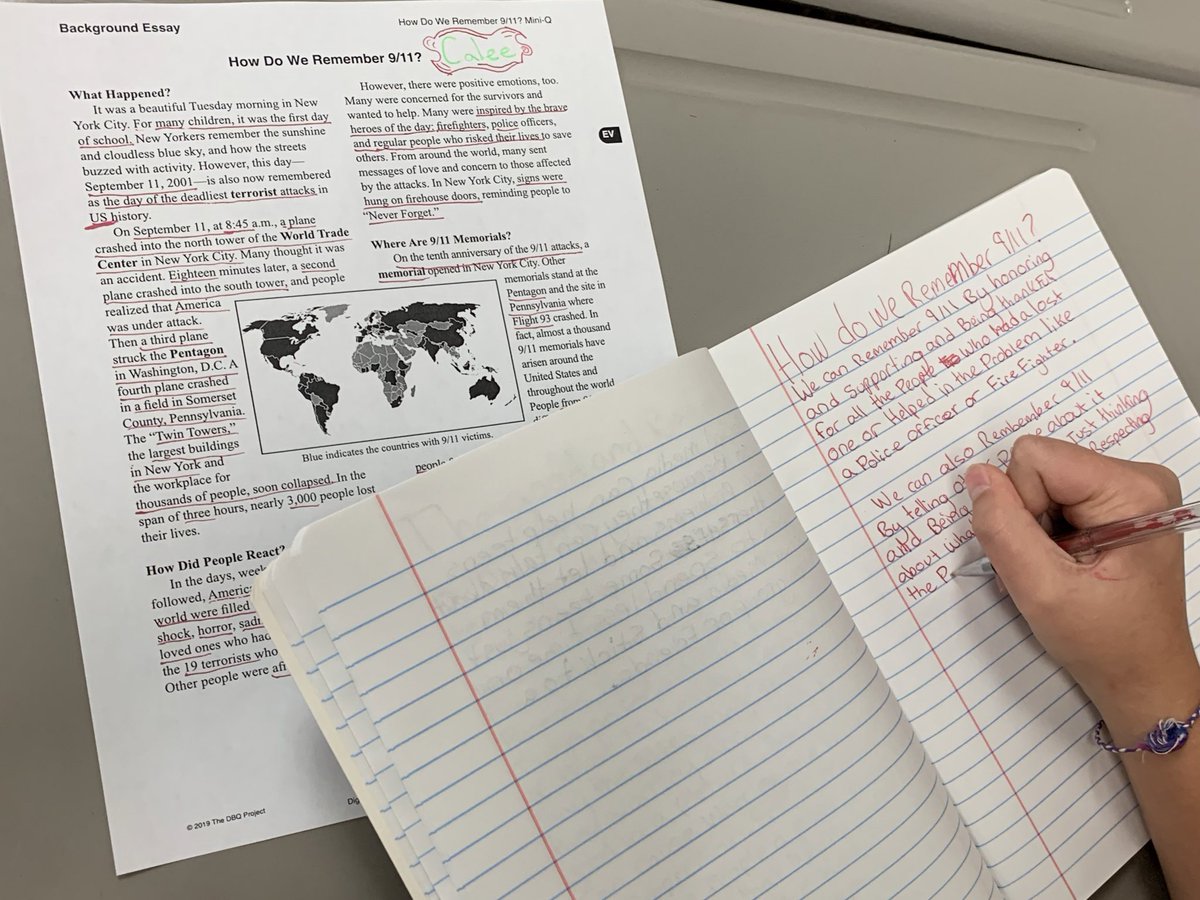 Background Essay
How Do We Remember 9/11? Mini-Q
How Do We Remember 9/11?
Calee
What Happened?
It was a beautiful Tuesday morning in New
York City. For many children, it was the first day
of school. New Yorkers remember the sunshine
and cloudless blue sky, and how the streets
buzzed with activity. However, this day—
September 11, 2001—is also now remembered
as the day of the deadliest terrorist attacks in
US history.
On September 11, at 8:45 a.m., a plane
crashed into the north tower of the World Trade
Center in New York City. Many thought it was
an accident. Eighteen minutes later, a second
plane crashed into the south tower, and people
realized that America
was under attack.
Then a third plane
struck the Pentagon
in Washington, D.C. A
fourth plane crashed
in a field in Somerset
County, Pennsylvania.
The “Twin Towers,”
the largest buildings
in New York and
the workplace for
thousands of people, soon collapsed. In the
span of three hours, nearly 3,000 people lost
their lives.
Blue indicates the countries with 9/11 victims.
How Did People React?
In the days, week
followed, Americ
world were filled
shock, horror, sad
loved ones who had
the 19 terrorists who
Other people were
© 2019 The DBQ Project
However, there were positive emotions, too.
Many were concerned for the survivors and
wanted to help. Many were inspired by the brave
heroes of the day: firefighters, police officers,
and regular people who risked their lives to save
others. From around the world, many sent
messages of love and concern to those affected
by the attacks. In New York City, signs were
hung on firehouse doors, reminding people to
“Never Forget.”
EV
Where Are 9/11 Memorials?
On the tenth anniversary of the 9/11 attacks, a
memorial opened in New York City. Other
memorials stand at the
Pentagon and the site in
Pennsylvania where
Flight 93 crashed. In
fact, almost a thousand
9/11 memorials have
arisen around the
United States and
throughout the world
People from
people
How do We Remember 9/11?
We can Remember 9/11 By honoring
and supporting and Being thankful
for all the People who had a lost
one or Helped in the Problem like
a Police officer or FireFighter.
We can also Rembember 9/11
By telling about it
and Being Just thinking
about Respecting
the P